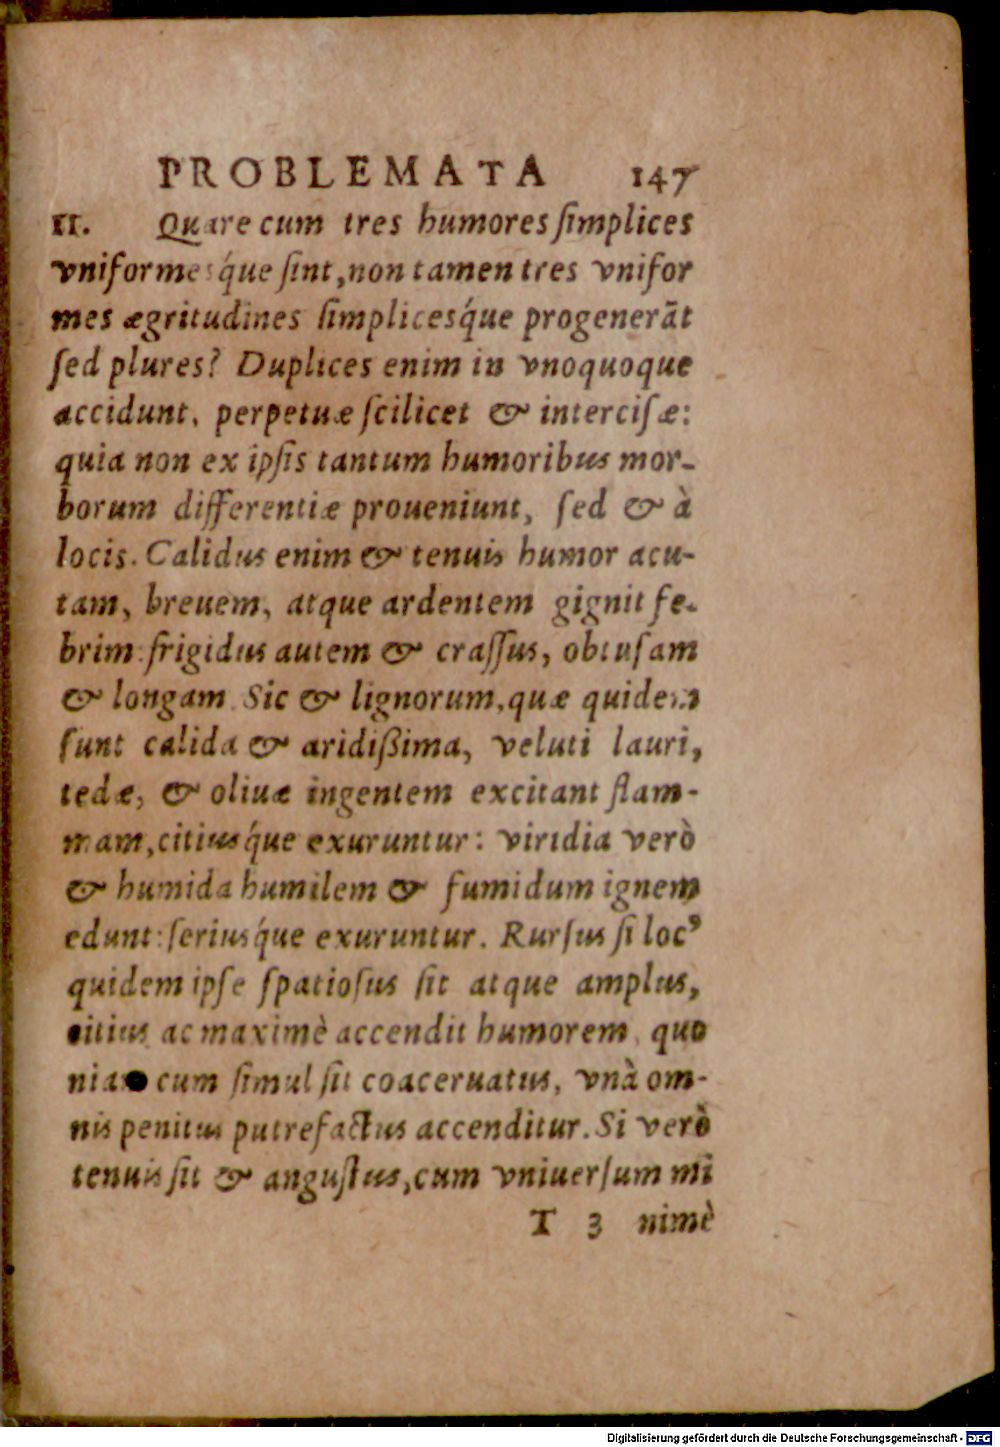 PROBLEMATA 147
II. Quare cum tres humores ſimplices
vniformesq́ue ſint, non tamen tres vnifor
mes ægritudines ſimplicesq́ue progenerāt
ſed plures? Duplices enim in vnoquoque
accidunt, perpetuæ ſcilicet & interciſæ:
quia non ex ipſis tantum humoribus mor-
borum differentiæ proueniunt, ſed & à
locis. Calidus enim & tenuis humor acu-
tam, breuem, atque ardentem gignit fe-
brim: frigidus autem & craſſus, obtuſam
& longam. Sic & lignorum, quæ quidem
ſunt calida & aridißima, veluti lauri,
tedæ, & oliuæ ingentem excitant flam-
mam, citiusq́ue exuruntur: viridia verò
& humida humilem & fumidum ignem
edunt: ſeriusq́ue exuruntur. Rurſus ſi locꝰ
quidem ipſe ſpatioſus ſit atque amplus,
citius ac maximè accendit humorem, quo
niam cum ſimul ſit coaceruatus, vnà om-
nis penitus putrefactus accenditur. Si verò
tenuis ſit & anguſtus, cum vniuerſum mi
T 3 nimè
Digitalisierung gefördert durch die Deutsche Forschungsgemeinschaft - DFG